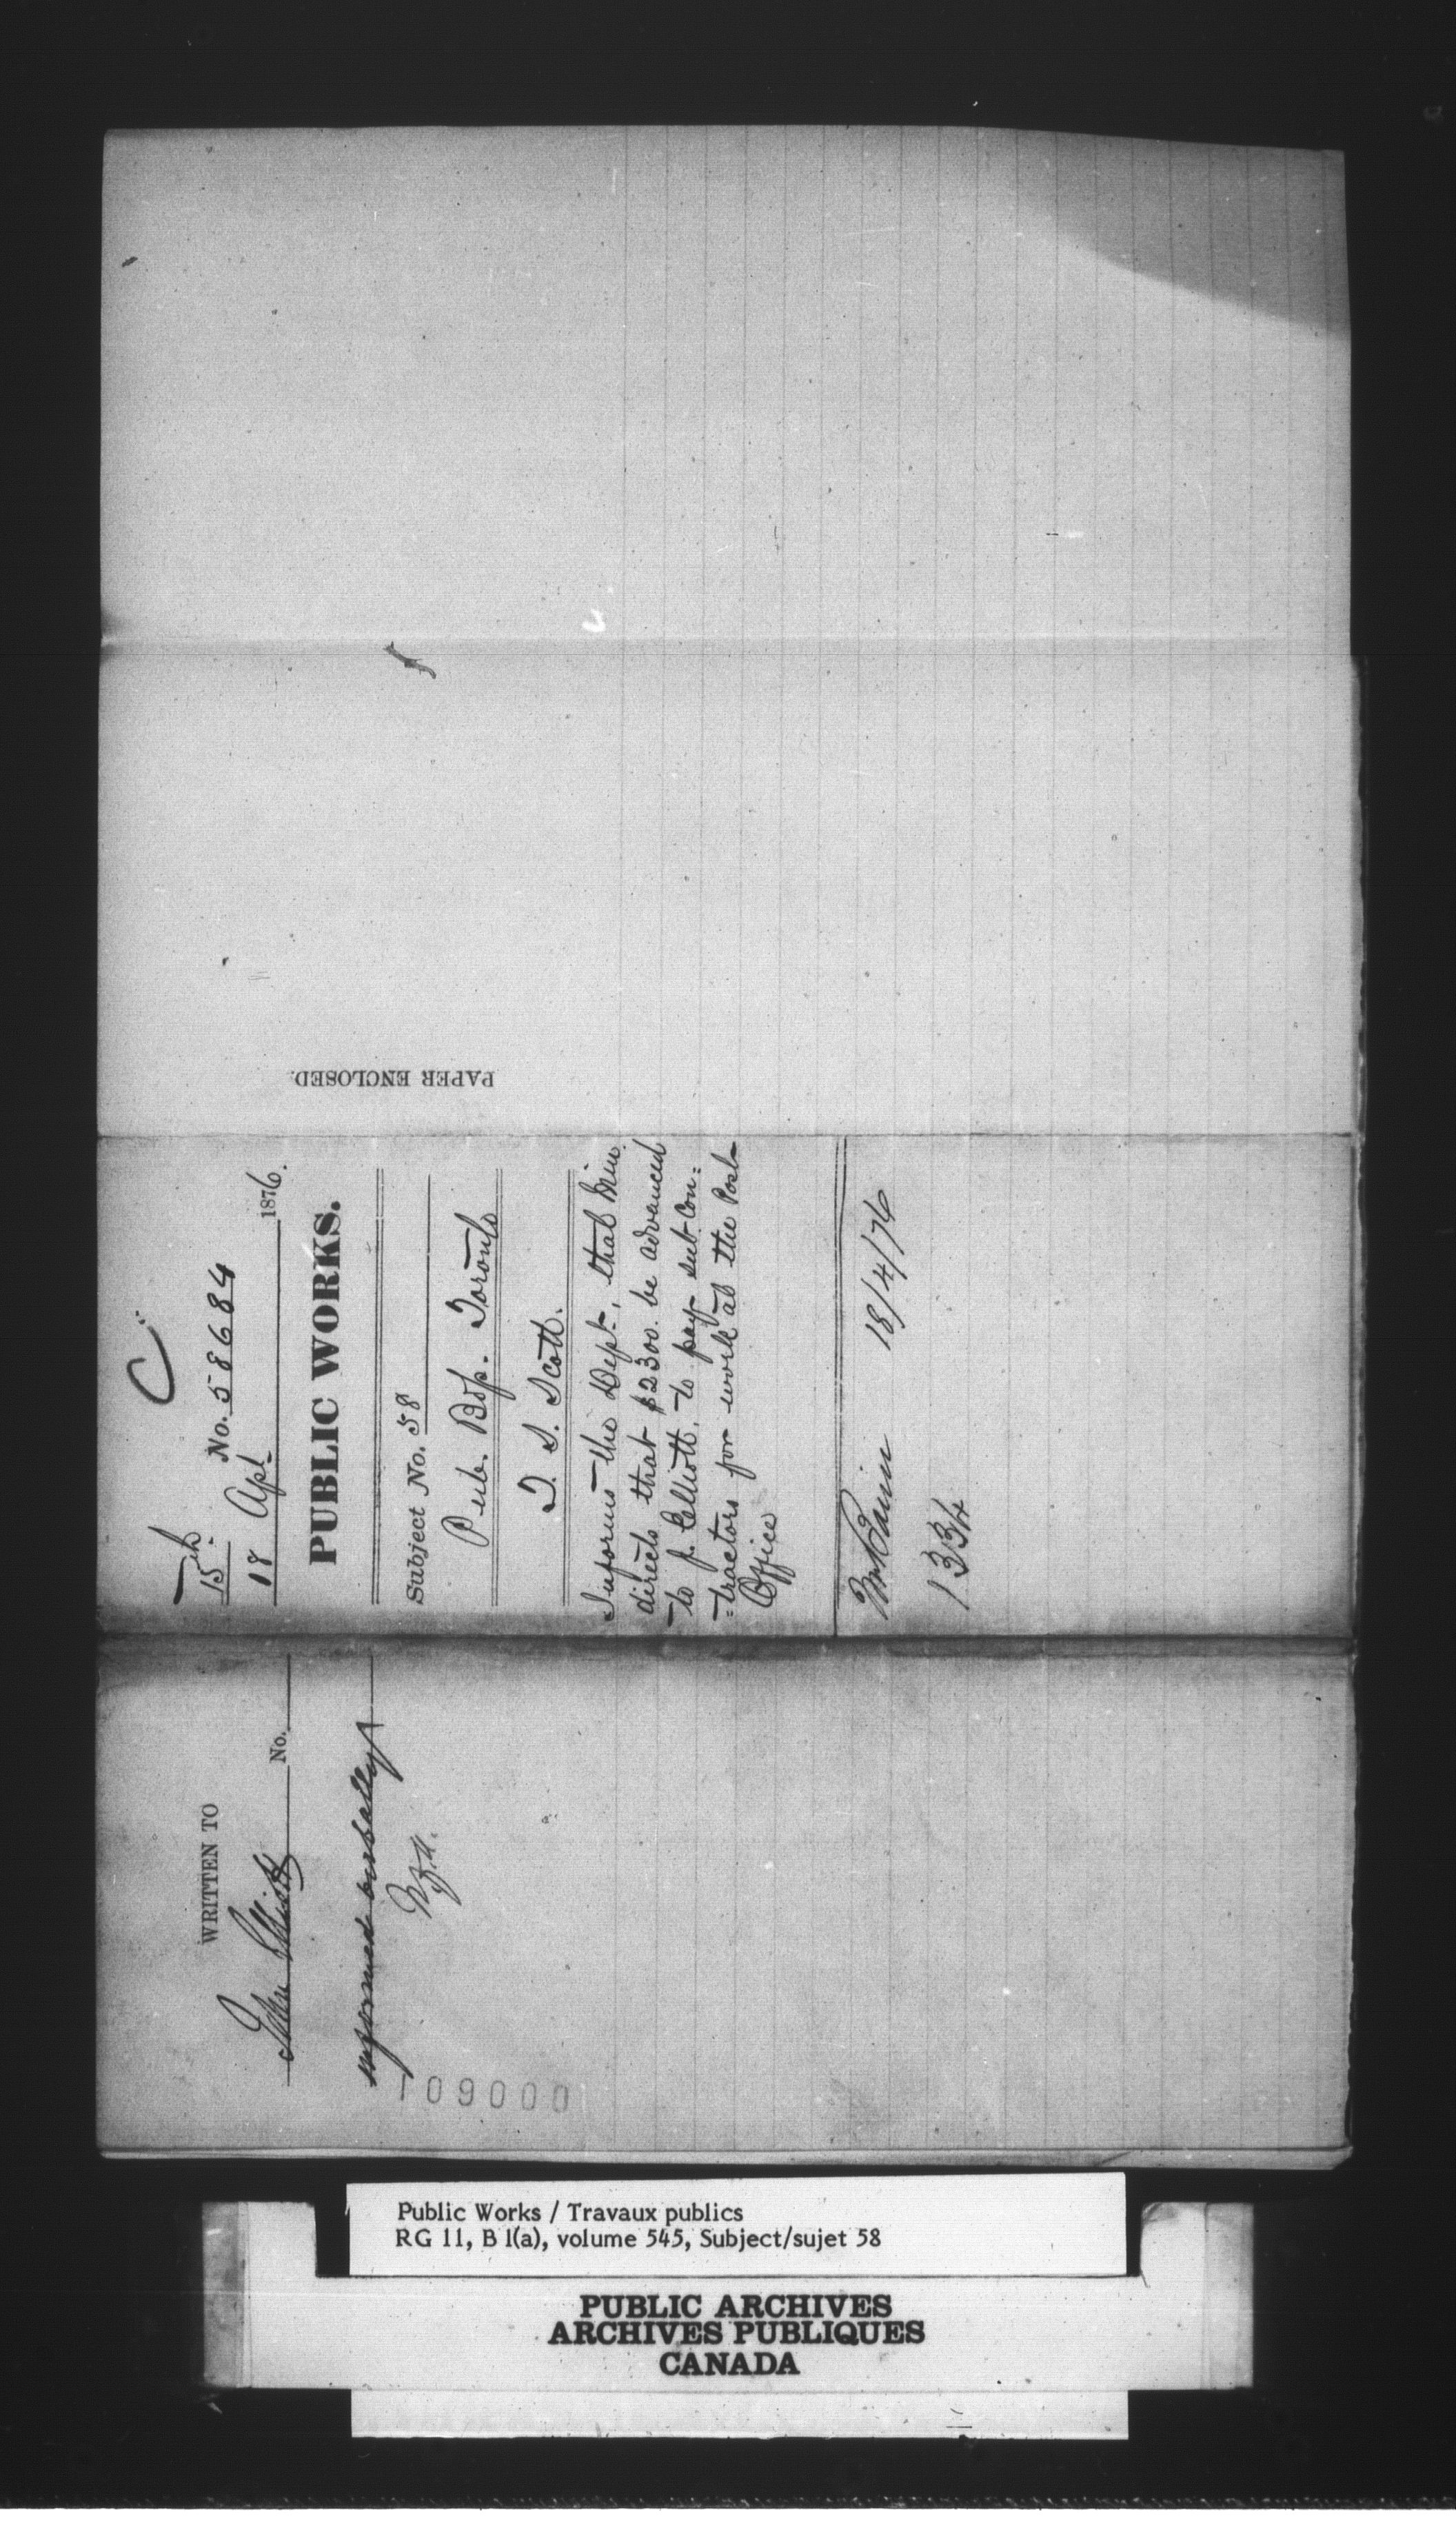 C
15th No. 58684
18 Apl 1876.
PUBLIC WORKS.
Subject No. 58
Pub. Bdgs. Toronto
T. S. Scott.
Informs the Dept, that Min.
directs that $2300. be advanced
to J. Elliott, to pay sub-Con:
=tractors for work at the Post-
Office
18/4/76
1334
PAPER ENCLOSED.
WRITTEN TO
John Elliott No.
informed verbally
109000
Public Works / Travaux publics
RG 11, B 1(a), volume 545, Subject/sujet 58
PUBLIC ARCHIVES
ARCHIVES PUBLIQUES
CANADA